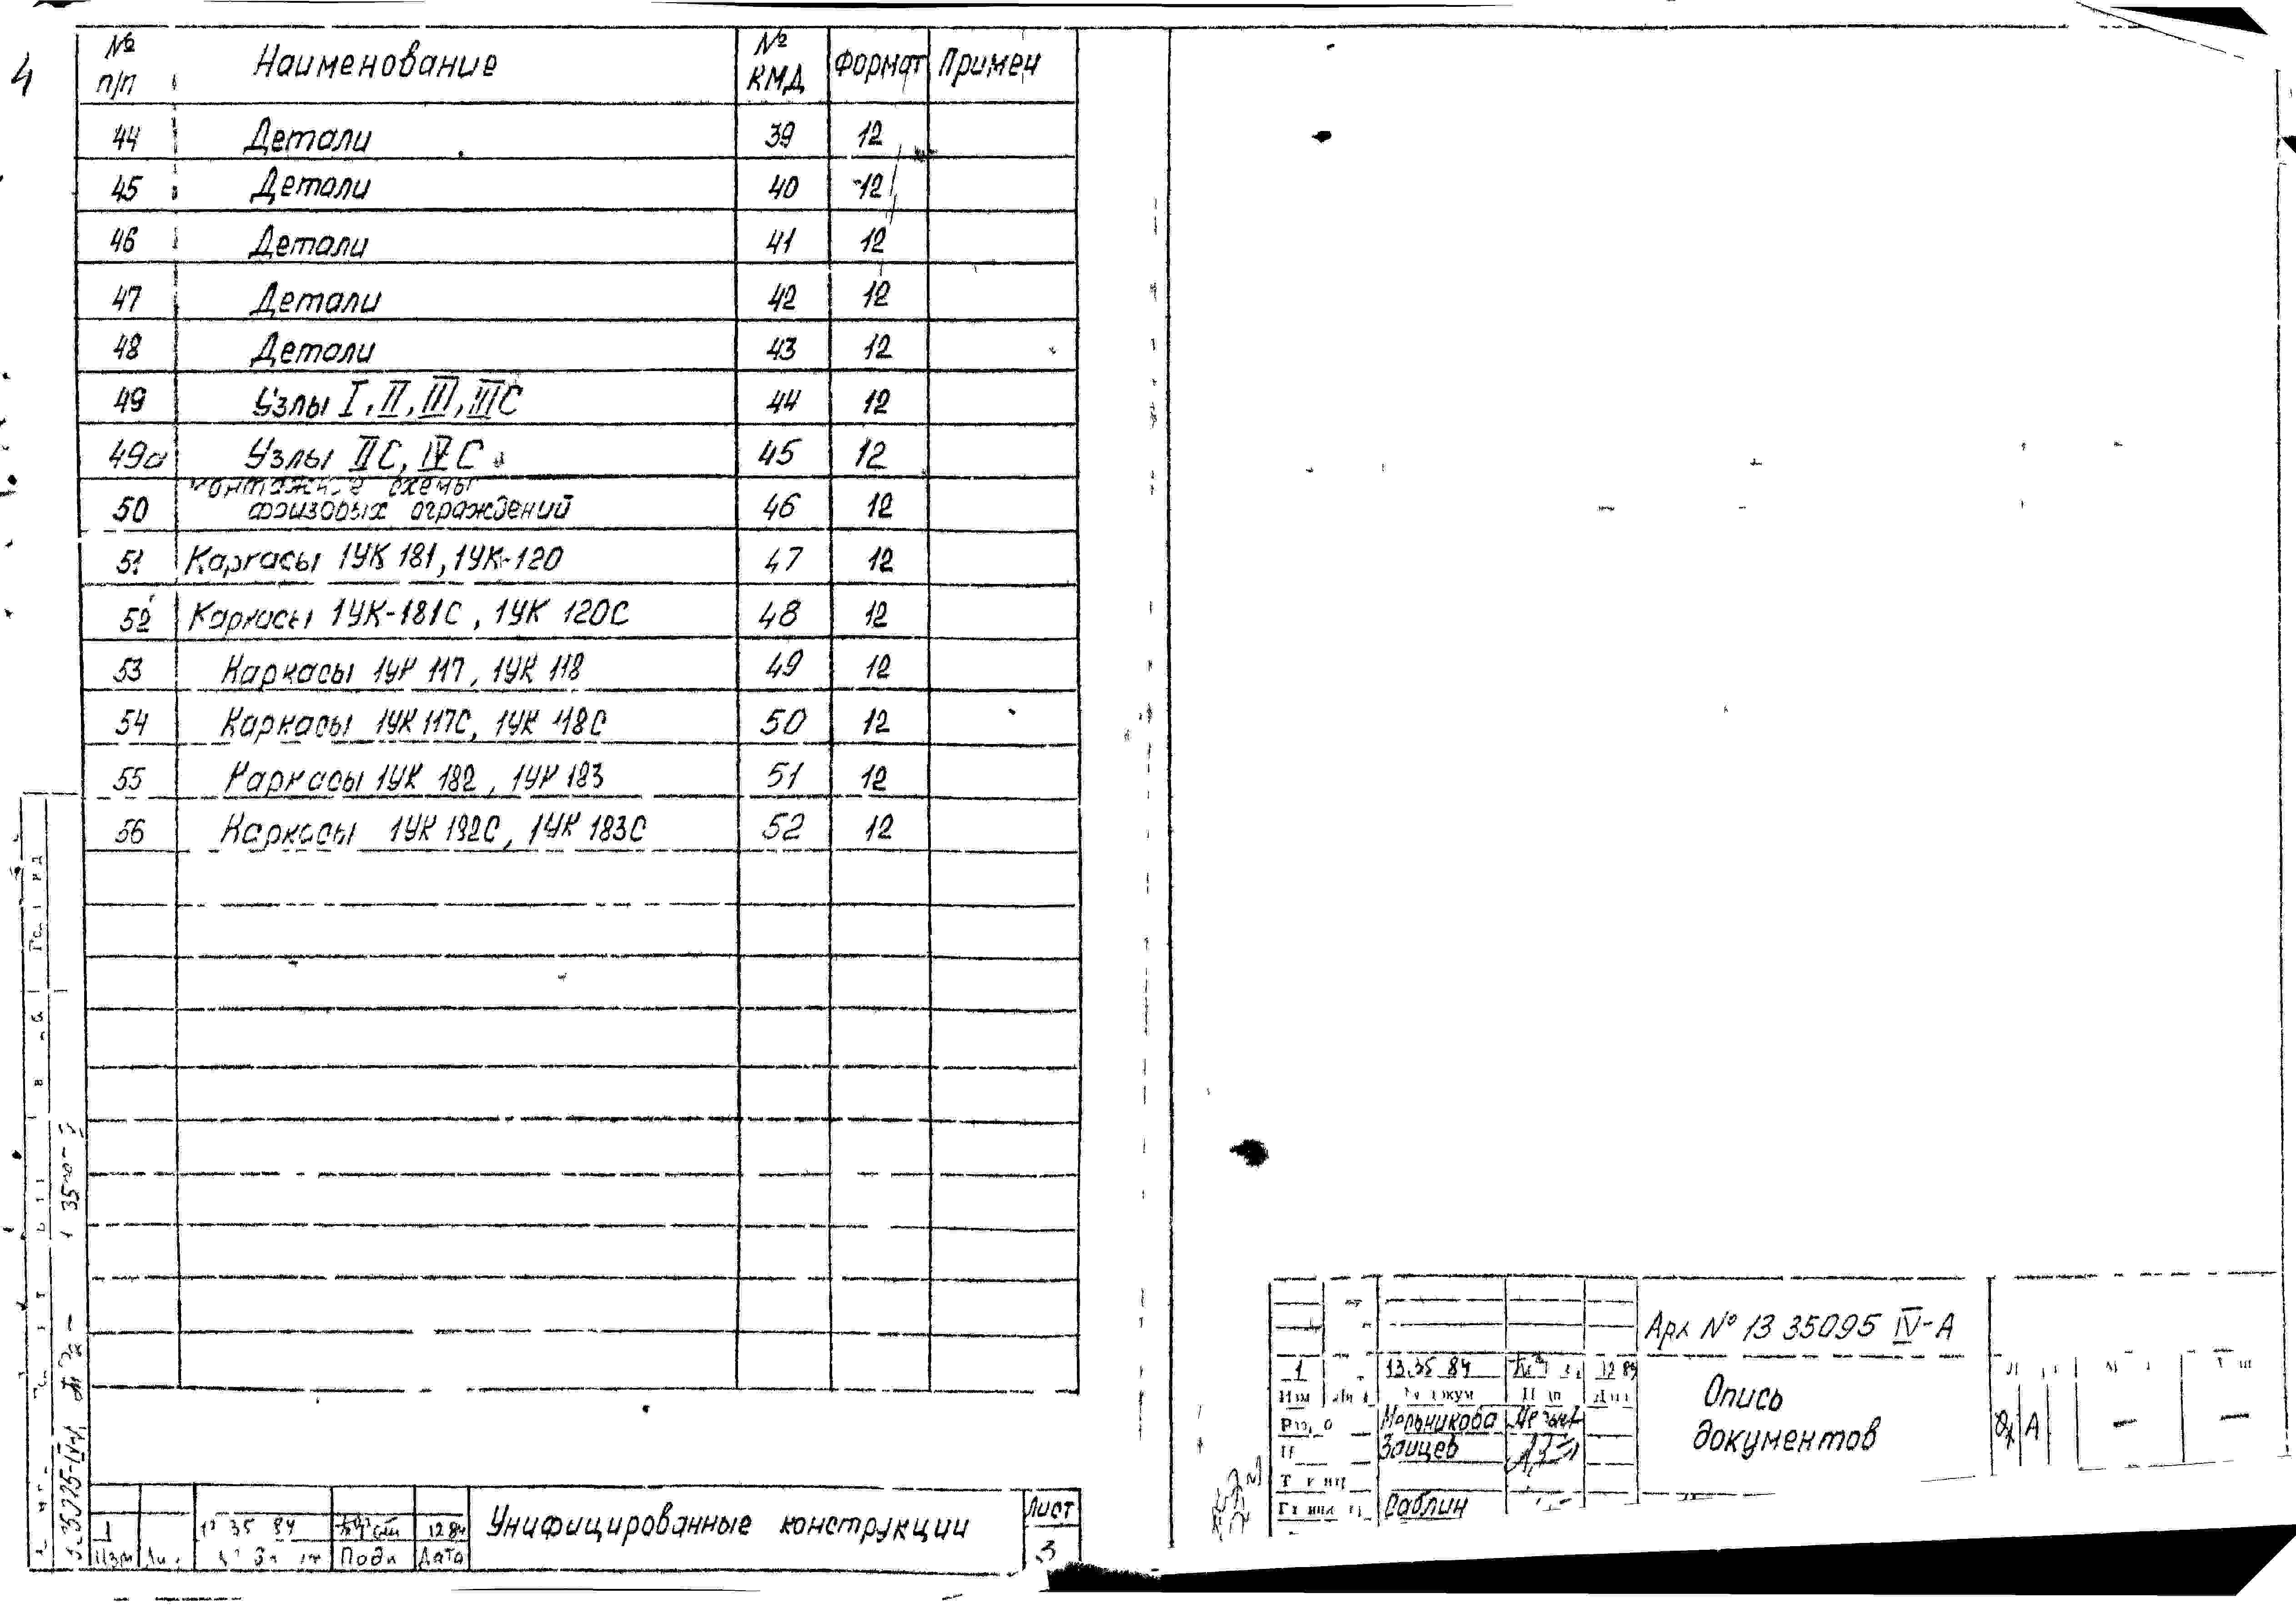 4
№ п/п Наименование № КМД Формат Примеч
44 Детали 39 12
45 Детали 40 12
46 Детали 41 12
47 Детали 42 12
48 Детали 43 12
49 Узлы I, II, III, IIIС 44 12
49а Узлы IIС, IVС 45 12
монтажные схемы
50 фризовых ограждений 46 12
51 Каркасы 1УК 181, 1УК-120 47 12
52 Каркасы 1УК-181С, 1УК 120С 48 12
53 Каркасы 1УК 117, 1УК 118 49 12
54 Каркасы 1УК 117С, 1УК 118С 50 12
55 Каркасы 1УК 182, 1УК 183 51 12
56 Каркасы 1УК 182С, 1УК 183С 52 12
1 13 35 84 12 84
Изм Подп Дата
Унифицированные конструкции
Лист
3
Арх № 13 35095 IV-А
1 13.35 84 12 84
Изм
Мельникова
Зайцев
Саблин
Опись
документов
А